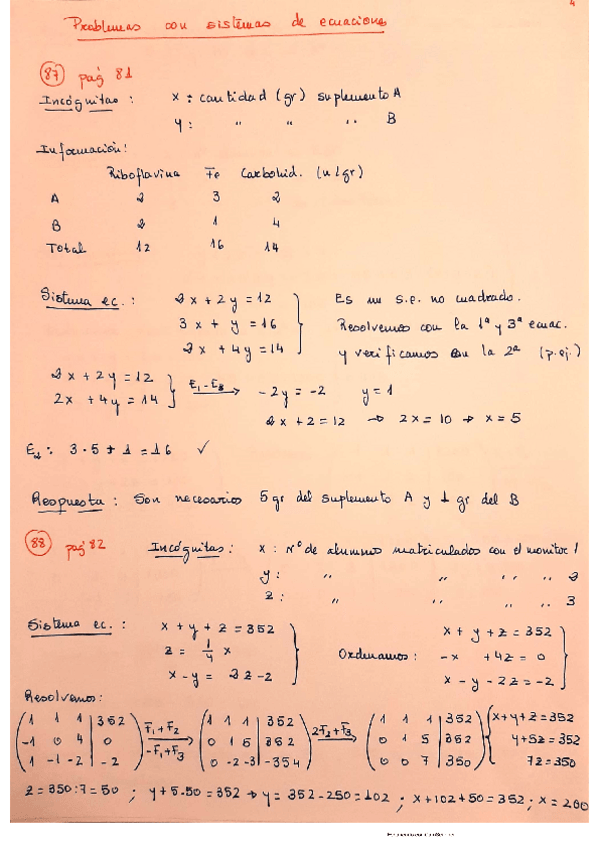 4
Problemas con sistemas de ecuaciones
87 pag 81
Incógnitas : x : cantidad (gr) suplemento A
y : " " " B
Información:
Riboflavina Fe Carbohid. (u/gr)
A 2 3 2
B 2 1 4
Total 12 16 14
Sistema ec. : 2x + 2y = 12
3x + y = 16
2x + 4y = 14
Es un s.e. no cuadrado.
Resolvemos con la 1ª y 3ª ecuac.
y verificamos con la 2ª (p.ej.)
2x + 2y = 12
2x + 4y = 14
E₁ - E₃ → -2y = -2 y = 1
2x + 2 = 12 → 2x = 10 → x = 5
E₂ : 3·5 + 1 = 16 ✓
Respuesta : Son necesarios 5 gr del suplemento A y 1 gr del B
88 pag 82 Incógnitas : x : Nº de alumnos matriculados con el monitor 1
y : " " " " " 2
z : " " " " " 3
Sistema ec. : x + y + z = 352
z = 1/4 x
x - y = 2z - 2
Ordenamos : x + y + z = 352
-x + 4z = 0
x - y - 2z = -2
Resolvemos:
( 1 1 1 | 352 ) F₁+F₂ ( 1 1 1 | 352 ) 2F₂+F₃ ( 1 1 1 | 352 ) { x+y+z = 352
( -1 0 4 | 0 ) → ( 0 1 5 | 352 ) → ( 0 1 5 | 352 ) y+5z = 352
( 1 -1 -2 | -2 ) -F₁+F₃ ( 0 -2 -3 | -354 ) ( 0 0 7 | 350 ) 7z = 350
z = 350:7 = 50 ; y + 5·50 = 352 → y = 352 - 250 = 102 ; x + 102 + 50 = 352 ; x = 200